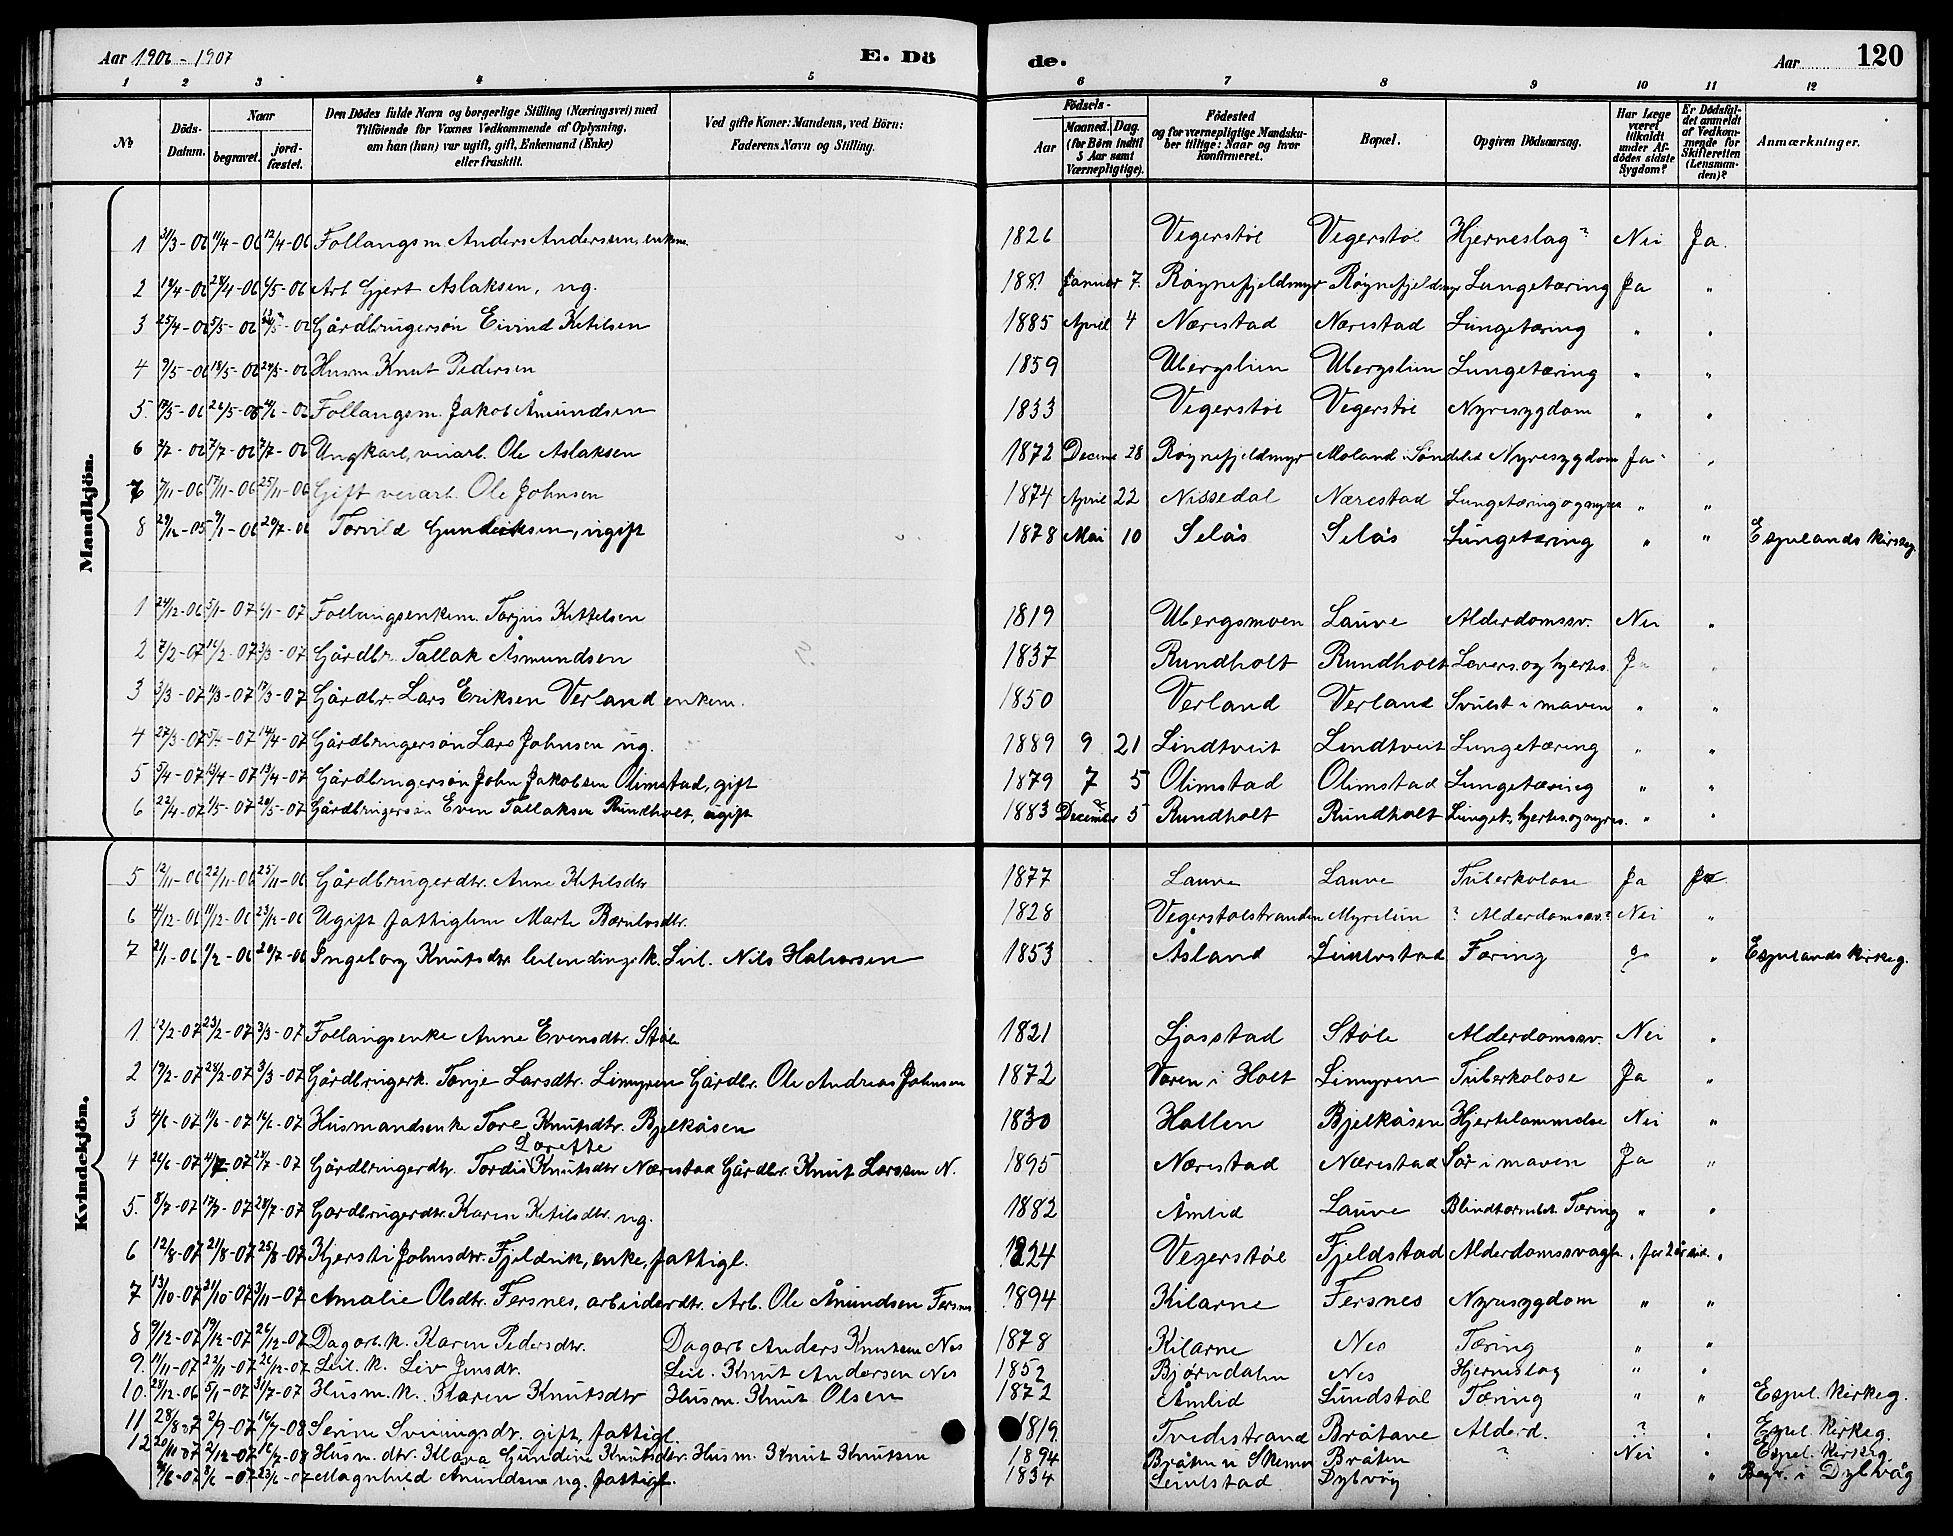 Aar 1906 - 1907 E. Dö de. Aar 120
1 2 3 4 5 6 7 8 9 10 11 12
№ Döds-Datum. Naar begravet. jordfæstet. Den Dödes fulde Navn og borgerlige Stilling (Næringsvei) med Tilföiende for Voxnes Vedkommende af Oplysning, om han (hun) var ugift, gift, Enkemand (Enke) eller fraskilt. Ved gifte Koner: Mandens, ved Börn: Faderens Navn og Stilling. Födsels- Aar Maaned. Dag. (for Börn indtil 5 Aar samt Værnepligtige). Födested og for værnepligtige Mandskaber tillige: Naar og hvor konfirmeret. Bopæl. Opgiven Dödsaarsag. Har Læge været tilkaldt under Afdödes sidste Sygdom? Er Dödsfaldet anmeldt af Vedkommende for Skifteretten (Lensmanden)? Anmærkninger.
Mandkjön.
1 31/3-06 11/4-06 12/4-06 Follaugsm. Anders Andersen, enkem. 1826 Vegerstøl Vegerstøl Hjerneslag? Nei Ja.
2 19/4-06 28/4-06 6/5-06 Arb Gjert Aslaksen, ug. 1881 Januar 7. Røynefjeldmyr Røynefjeldmyr Lungetæring Ja "
3 25/4-06 5/5-06 13/5-06 Gårdbrugersøn Eivind Ketilsen 1885 April 4 Nærestad Nærestad Lungetæring " "
4 9/5-06 18/5-06 24/5-06 Husm. Knut Pedersen 1859 Ubergslien Ubergslien Lungetæring " "
5. 17/5-06 26/5-06 4/6-06 Follaugsm. Jakob Åmundsen 1833 Vegerstøl Vegerstøl Nyresygdom " "
6 2/7-06 7/7-06 7/7-06 Ungkarl, veiarb. Ole Aslaksen 1872 Decem 28 Røynefjeldmyr Moland i Søndeled Nyresygdom Ja "
7 7/11-06 17/11-06 25/11-06 Gift veiarb. Ole Johnsen 1874 April 22 Nissedal Nærestad Lungetæring og nyres " "
8 29/12-05 9/1-06 20/7-06 Torvild Gunderksen, ugift 1878 Mai 10 Selås Selås Lungetæring " " Espelands kirkeg.
1 24/12-06 5/1-07 6/1-07 Follaugsenkem. Torjus Kittelsen 1819 Ubergsmoen Lauve Alderdomssv. Nei "
2 7/2-07 16/2-07 3/3-07 Gårdbr. Tallak Åsmundsen 1837 Rundholt Rundholt Levers. og hjertes. Ja "
3 3/3-07 11/3-07 17/3-07 Gårdbr. Lars Eriksen Verland enkem. 1850 Verland Verland Svulst i maven " "
4 27/3-07 5/4-07 14/4-07 Gårdbrugersøn Lars Johnsen ug. 1889 9 21 Lindtveit Lindtveit Lungetæring " "
5 5/4-07 13/4-07 13/4-07 Gårdbrugersøn John Jakobsen Olimstad, gift 1879 7 5 Olimstad Olimstad Lungetæring " "
6 22/4-07 1/5-07 20/5-07 Gårdbrugersøn Even Tallaksen Rundholt, ugift 1883 December 5 Rundholt Rundholt Lunget., hjertes. og nyres. " "
Kvindekjön.
5 12/11-06 22/11-06 25/11-06 Gårdbrugerdtr. Anne Ketilsdtr 1877 Lauve Lauve Tuberkolose Ja Ja.
6 4/12-06 11/12-06 23/12-06 Ugift fattiglem Marte Bærulvsdtr. 1828 Vegerstølstranden Myrelien ? Alderdomssv.? Nei "
7 24/1-06 1/2-06 20/7-06 Ingeborg Knutsdtr. leilendingsk. Leil. Nils Halvorsen 1853 Åsland Leiulvstad Tæring ? " Espelands kirkeg.
1 12/2-07 23/2-07 3/3-07 Follaugsenke Anne Evensdtr. Støle 1821 Ljosstad Støle Alderdomssv. Nei "
2 19/2-07 28/2-07 3/3-07 Gårdbrugerk. Tonje Larsdtr. Limyren Gårdbr. Ole Andreas Johnsen 1872 Voren i Holt Limyren Tuberkolose Ja "
3 4/6-07 11/6-07 16/6-07 Husmandsenke Tore Knutsdtr. Bjelkåsen 1830 Hallen Bjelkåsen Hjertelammelse Nei "
Lorette
4 26/6-07 4/7-07 21/7-07 Gårdbrugerdtr. Tordis Knutsdtr Nærestad Gårdbr. Knut Larssen N. 1895 Nærestad Nærestad Sår i maven Ja "
5. 8/7-07 17/7-07 28/7-07 Gårdbrugerdtr. Karen Ketilsdtr. ug. 1882 Åmlid Lauve Blindtarmbet. Tæring " "
6 12/8-07 21/8-07 25/8-07 Kjersti Johnsdtr. Fjeldvik, enke, fattigl. 1824 Vegerstøl Fjeldstad Alderdomssvagh. " for 2 år sid. "
7 13/10-07 21/10-07 3/11-07 Amalie Olsdtr. Fersnes, arbeiderdtr. Arb. Ole Åmundsen Fersnes 1894 Kilarne Fersnes Nyresygdom " "
8 9/12-07 19/12-07 26/12-07 Dagarb. k. Karen Pedersdtr. Dagarb Anders Knutsen Nes 1878 Kilarne Nes Tæring " "
9 11/11-07 22/11-07 26/12-07 Leil. k. Liv Jensdtr. Leil. Knut Andersen Nes 1852 Bjørndalen Nes Hjerneslag " "
10 24/12-06 5/1-07 31/7-07 Husm. k. Karen Knutsdtr Husm. Knut Olsen 1872 Åmlid Lundstøl Tæring " " Espel. kirkeg.
11 28/8-07 2/9-07 16/7-08 Serine Sveinungsdtr. gift, fattigl. 1819. Tvedestrand Bråtane Alderd. ? " Espel. kirkeg.
12 20/11-07 2/12-07 16/7-08 Husm. dtr. Klara Gundine Knutsdtr. Husm. Knut Knutsen 1894 Bråten u Skemer Bråten ? Nei " Espel. kirkeg.
-07 8/6-07 23/6-07 Magnhild Åmundsen ug. fattigl. 1834 Leiulstad Dybvåg " Begr. i Dybvåg